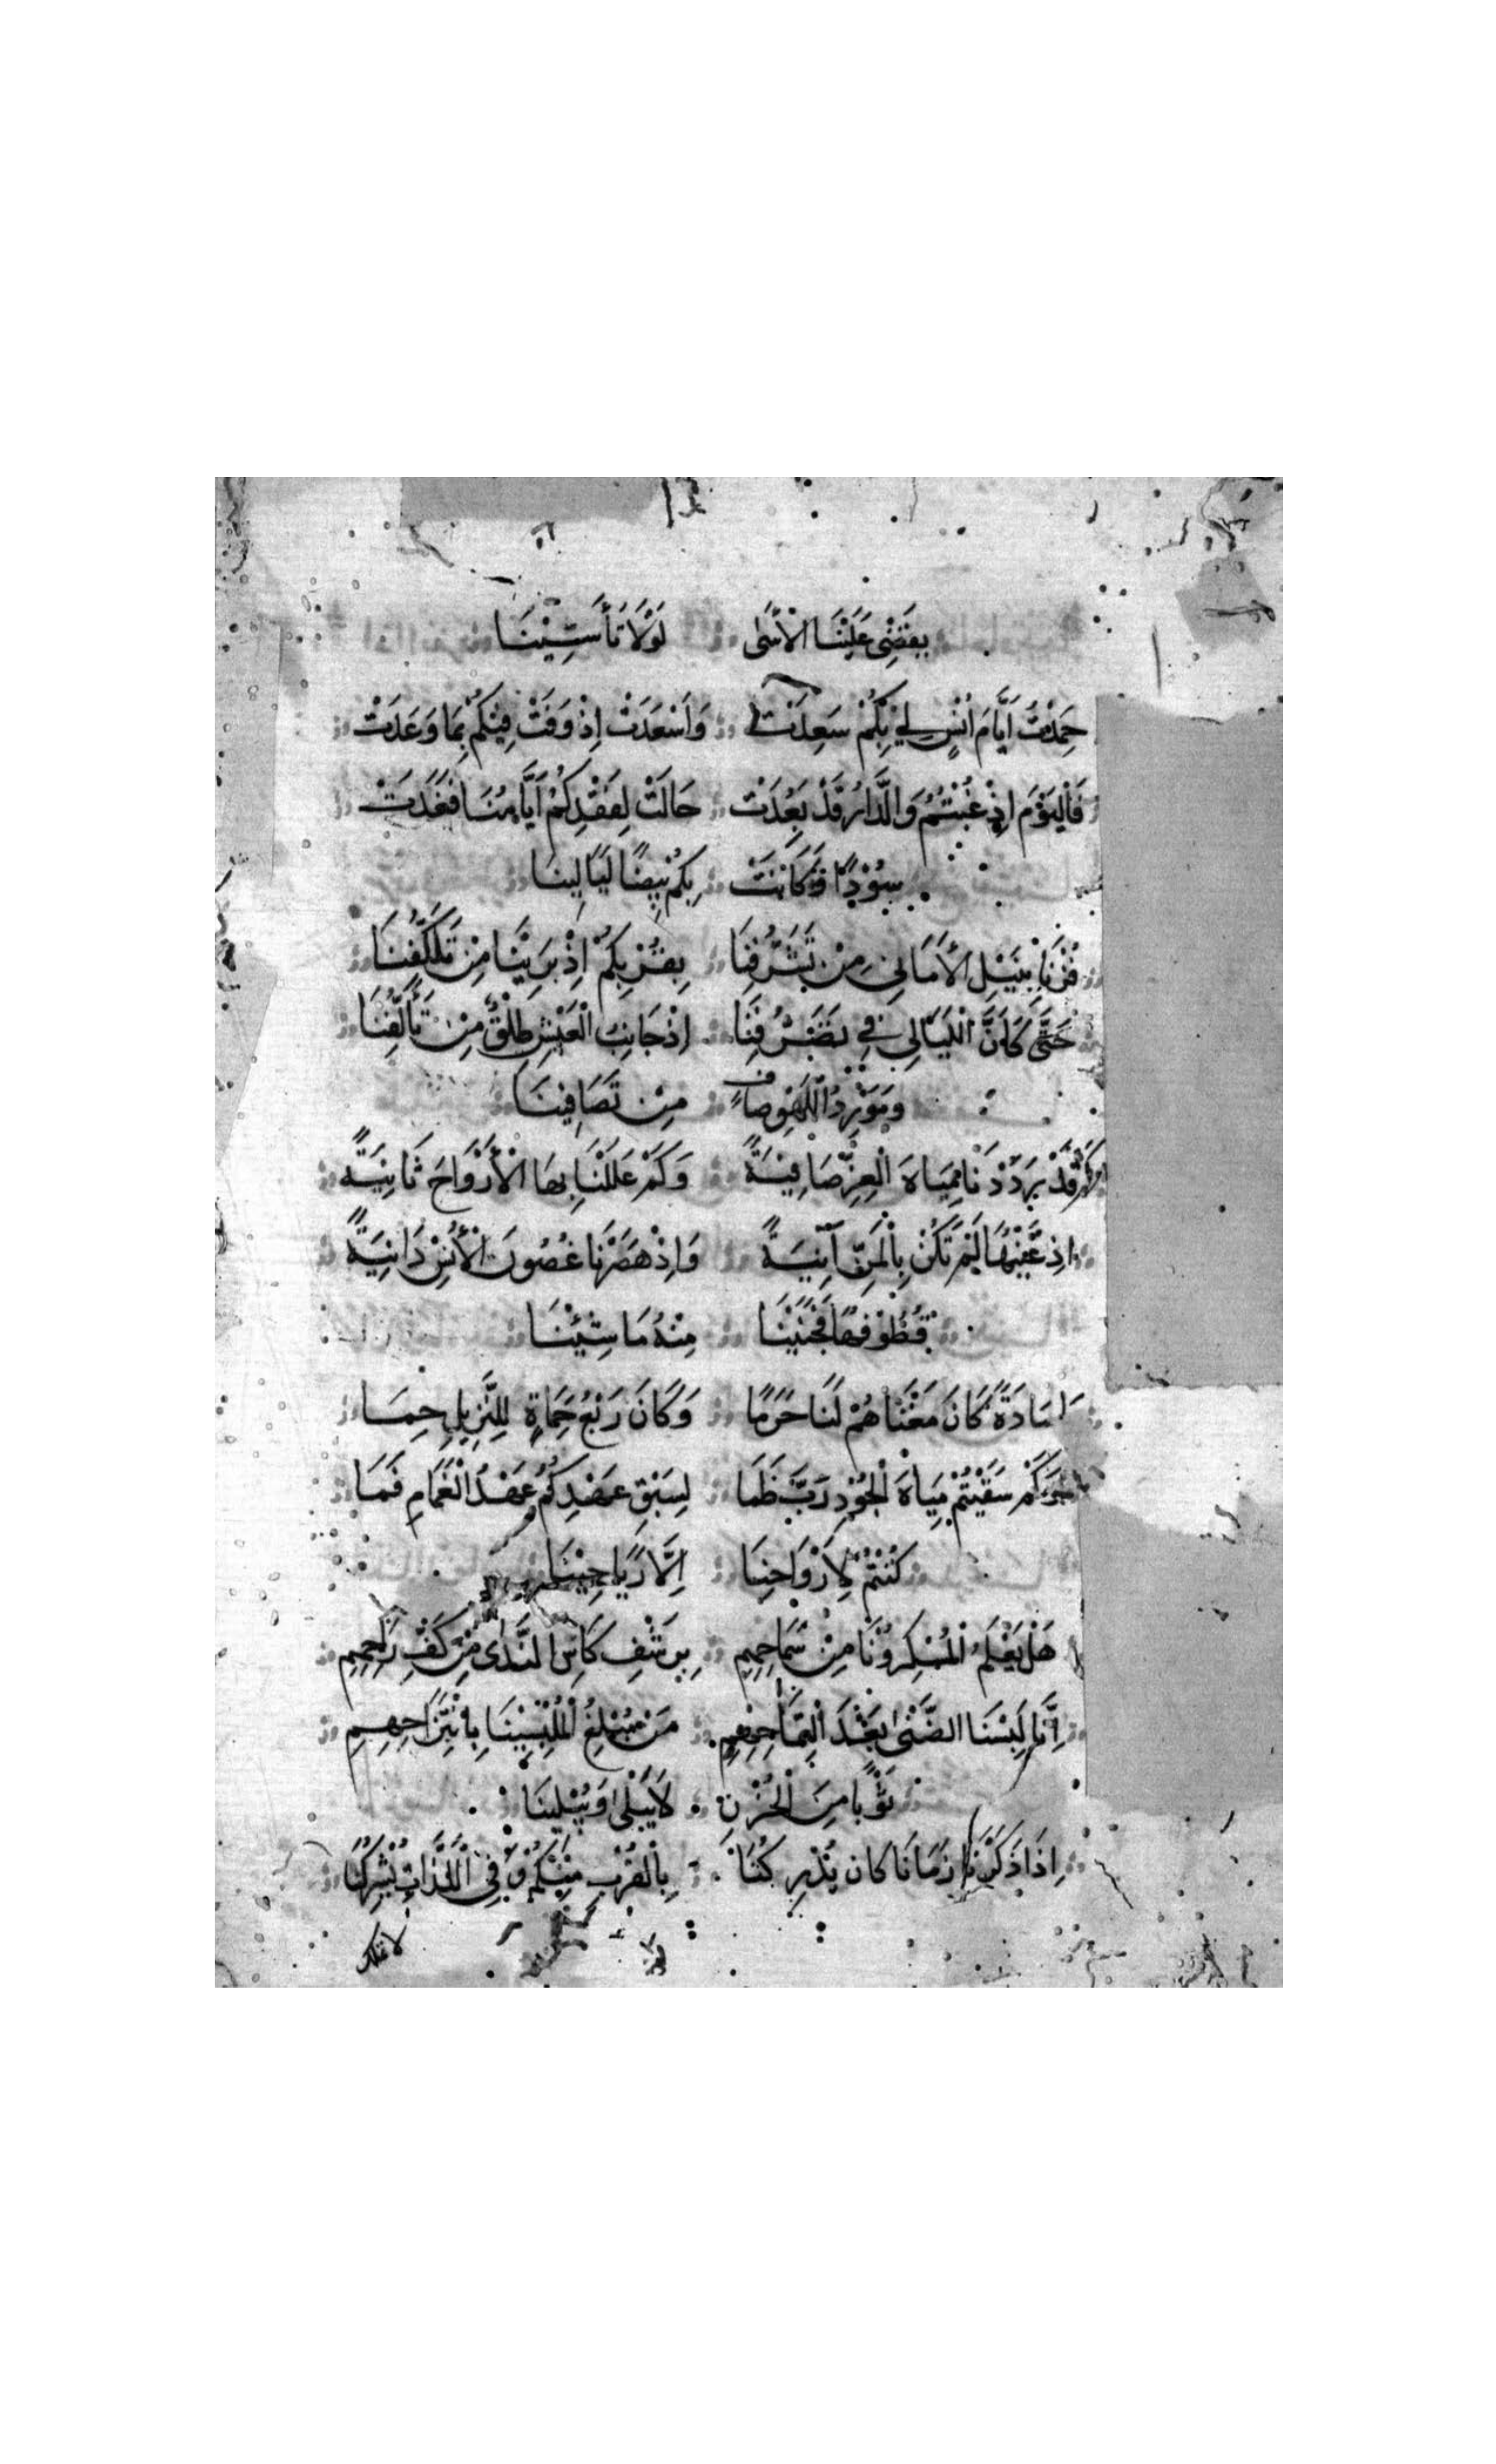 يَقْضِي عَلَيْنَا الْأَسَى لَوْلَا تَأَسِّيْنَا
حَمِدْتُ أَيَّامَ أُنْسٍ لِي بِكُمْ سَعِدَتْ وَأَسْعَدَتْ إِذْ وَفَتْ فِيْكُمْ بِمَا وَعَدَتْ
فَالْيَوْمَ إِذْ غِبْتُمُ وَالدَّارُ قَدْ بَعُدَتْ حَالَتْ لِفَقْدِكُمْ أَيَّامُنَا فَغَدَتْ
سُوْدًا وَكَانَتْ بِكُمْ بِيْضًا لَيَالِينَا
فُزْنَا بِنَيْلِ الْأَمَانِي مِنْ تَشَرُّفِنَا بِقُرْبِكُمْ إِذْ بَرِيْنَا مِنْ تَكَلُّفِنَا
حَتَّى كَأَنَّ اللَّيَالِي فِي تَصَرُّفِنَا إِذْ جَانِبُ الْعَيْشِ طَلْقٌ مِنْ تَأَلُّفِنَا
وَمَوْرِدُ اللَّهْوِ صَافٍ مِنْ تَصَافِينَا
كَمْ قَدْ وَرَدْنَا مِيَاهَ الْعِزِّ صَافِيَةً وَكَمْ عَلَلْنَا بِهَا الْأَرْوَاحَ ثَانِيَةً
إِذْ عَيْنُهَا لَمْ تَكُنْ بِالْمَنِّ آنِيَةً وَإِذْ هَصَرْنَا غُصُونَ الْأُنْسِ دَانِيَةً
قُطُوْفُهَا فَجَنَيْنَا مِنْهُ مَا شِيْنَا
يَا سَادَةً كَانَ مَغْنَاهُمْ لَنَا حَرَمًا وَكَانَ رَبْعُ حَمَاةٍ لِلنَّزِيلِ حِمَا
كَمْ سَقَيْتُمْ مِيَاهَ الْجُوْدِ رَبَّ ظَمَا لِسَبْقِ عَهْدِكُمُ عَهْدُ الْغَمَامِ فَمَا
كُنْتُمْ لِأَرْوَاحِنَا إِلَّا رَيَاحِيْنَا
هَلْ يَعْلَمُ الْمُسْكِرُوْنَا مِنْ سَمَاحِهِمِ بِرَشْفِ كَاسِ النَّدَى مِنْ كَفِّ رَاحِهِمِ
أَنَّا لَبِسْنَا الضَّنَى بَعْدَ الْتِمَاحِهِمِ مَنْ مُبْلِغُ الْمُلْبِسِيْنَا بِانْتِزَاحِهِمِ
ثَوْبًا مِنَ الْحُزْنِ لَا يَبْلَى وَيُبْلِينَا
إِذَا ذَكَرْنَا زَمَانًا كَانَ يُدْرِكُنَا بِالْقُرْبِ مِنْكُمْ وَفِي اللَّذَّاتِ يُشْرِكُنَا